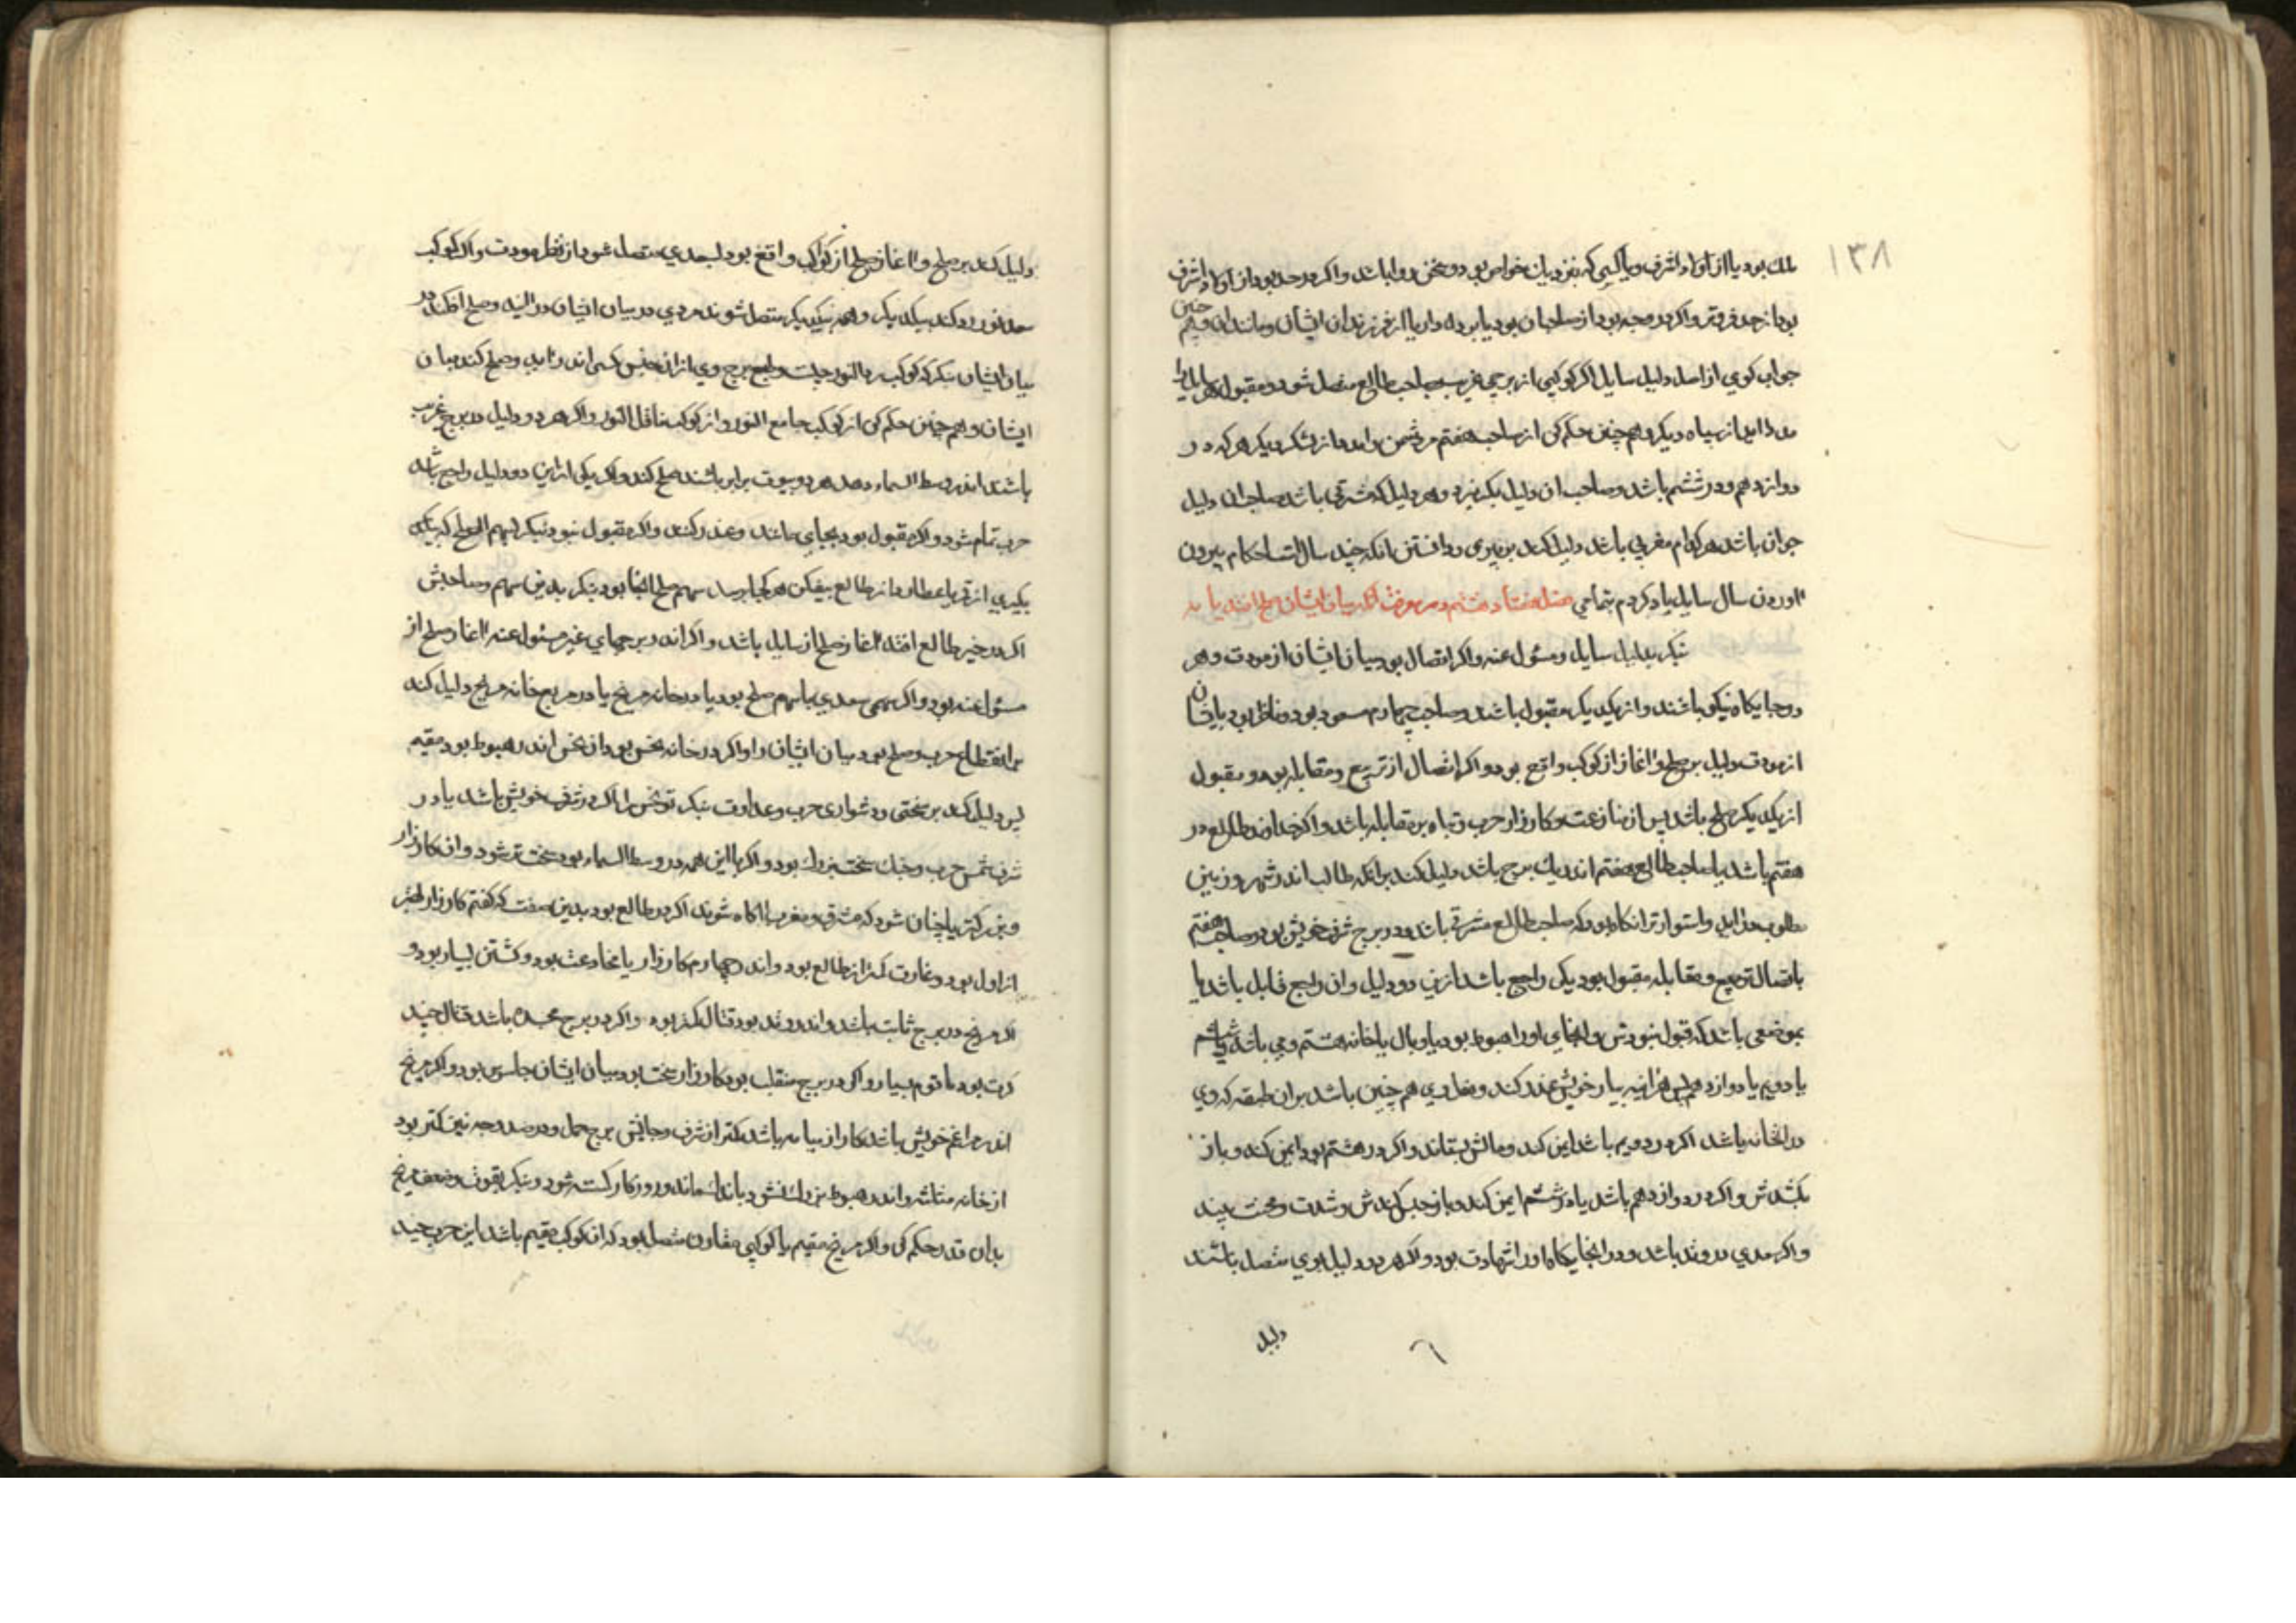 ۱۳۸
ملک بود یا از اولاد اشرف و یا کسی که نزدیک خواص بود و سخن روا باشد و اگر در حد بود از اولاد اشرف
بود از حد فروتر و اگر در وجه بود از صاحبان بود یا برده دار یا از فرزندان ایشان و مانند این و هم چنین
جواب کوی از اصل دلیل سایل اگر کوکبی از برجی غریب بصاحب طالع متصل شود و مقبول بود سایل را
مدد اید از سپاه دیگر و هم چنین حکم کن از صاحب هفتم مر دشمن را مدد از لشکر دیگر هر که در
دوازدهم و در ششم باشد و صاحب ان دلیل بگریزد و هر دلیل که مشرقی باشد صاحب ان دلیل
جوان باشد هر کدام مغربی باشد دلیل کند بر پیری و دانستن انکه چند سال است احکام بیرون
اوردن سال سایل یاد کردم بتمامی مسئله هفتاد و هشتم در معرفت انکه میان ایشان صلح افتد یا نه
بنگر بدلیل سایل و مسئول عنه و اگر اتصال بود میان ایشان از مودت و هر
دو جایگاه نیکو باشند و از یکدیگر مقبول باشند و صاحب چهارم مسعود بود و ناظر بود بایشان
از مودت دلیل بر صلح و اغاز از کوکب واقع بود و اگر اتصال از تربیع و مقابله بود و مقبول
از یکدیگر صلح باشد پس از منازعت و کارزار حرب و تباه بر مقابله باشد و اگر خداوند طالع در
هفتم باشد یا صاحب طالع و هفتم اندر یک برج باشد دلیل کند بر انکه طالب اندر شهر و زمین
مطلوب در اید و استوارتر انکاه بود که صاحب طالع مشرقی باشد و در برج شرف خویش بود و صاحب هفتم
باتصال تربیع و مقابله مقبول بود یکی راجع باشد ازین دو دلیل و ان راجع قابل باشد یا
بموضعی باشد که قبول نبودش و انجای او را هبوط بود یا وبال یا خانه هشتم وی باشد یا ششم
یا دویم یا دوازدهم پس هراینه بیار خویش غدر کند و مغادری هم چنین باشد بر ان طبقه که وی
در انخانه باشد اگر در دویم باشد ایمن کند و مالش بستاند و اگر در هشتم بود ایمن کند و باز
بکشدش و اگر در دوازدهم باشد یا در ششم ایمن کند و باز حبس کندش و شدت و محنت بیند
و اگر سعدی در وتد باشد و در انجایگاه او را شهادت بود و اگر هر دو دلیل بوی متصل باشند
دلیل
دلیل کند بر صلح و اغاز صلح از کوکب واقع بود بسعدی متصل شود از نظر مودت و اگر کوکب
سعد نور رد کند بیکدیگر و همه بیکدیگر متصل شوند مردی در میان ایشان در اید و صلح افکند در
میان ایشان بنگر که کوکب رد النور چیست و طبع برج وی از ان جنس کسی اندر اید و صلح کند میان
ایشان و هم چنین حکم کن از کوکب جامع النور و از کوکب ناقل النور و اگر هر دو دلیل در برج غریب
باشند اندر وسط السماء و هر دو بیوت برابر باشند صلح کند و اگر یکی از این دو دلیل راجع باشد
حرب تمام شود و اگر مقبول بود بجای ماند و غدر کند و اگر مقبول نبود بنگر بسهم الصلح که بگیری
بگیری از قمر تا عطارد از طالع بیفکن هر کجا رسد سهم صلح انجا بود بنگر بدین سهم و صاحبش
اگر در حیز طالع افتد اغاز صلح از سایل باشد و اگر اندر برجهای غیر مسئول عنه اغاز صلح از
مسئول عنه بود و اگر سهمی سعدی با سهم صلح بود یا در خانه مریخ یا در مربع خانه مریخ دلیل کند
بر انقطاع حرب و صلح بود میان ایشان را و اگر در خانه نحس بود ان نحس اندر هبوط بود مقیم
پس دلیل کند بر سختی و دشواری حرب و عداوت بنگر تو نحس را اگر در شرف خویش باشد یا در
شرف شمس حرب و جنگ سخت بزرگ بود و اگر با این همه در وسط السماء بود سخت تر شود و ان کارزار
و بزرگتر یا چنان شود که مشرق و مغرب اگاه شوند اگر در طالع بود بدین صفت که گفتم کارزار
از اول بود و غارت کمتر از طالع بود و اندر چهارم کارزار با مخادعت بود و کشتن بسیار بود و
اگر مریخ در برج ثابت باشد و اندر وتد بود قتال یکبار بود و اگر در برج مجسده باشد قتال چند
کرت بود با قوم بسیار و اگر در برج منقلب بود کارزار سخت بود میان ایشان جاسوس بود و اگر مریخ
اندر مراغم خویش باشد کارزار میانه باشد کمتر از شرف و جایش برج حمل و در صد درجه نیز کمتر بود
از خانه مثلثه و اندر هبوط بزرگ نشود باندک ماند و روزگار گسسته شود و بنگر بقوت و ضعف مریخ
بدان قدر حکم کن و اگر مریخ مقیم با کوکبی مقارن متصل بود که ان کوکب مقیم باشد این حرب چند